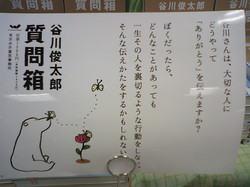 谷川俊太郎
質問箱
谷川さんは、大切な人に
どうやって
「ありがとう」を伝えますか?
ぼくだったら、
どんなことがあっても
一生その人を裏切るような行動をしない
そんな伝えかたをするかもしれない
質問箱